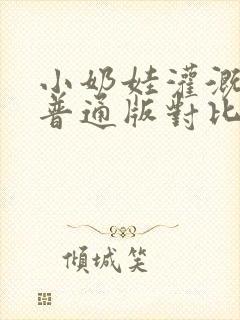 小奶娃灌溉
普通版對比
傾城笑